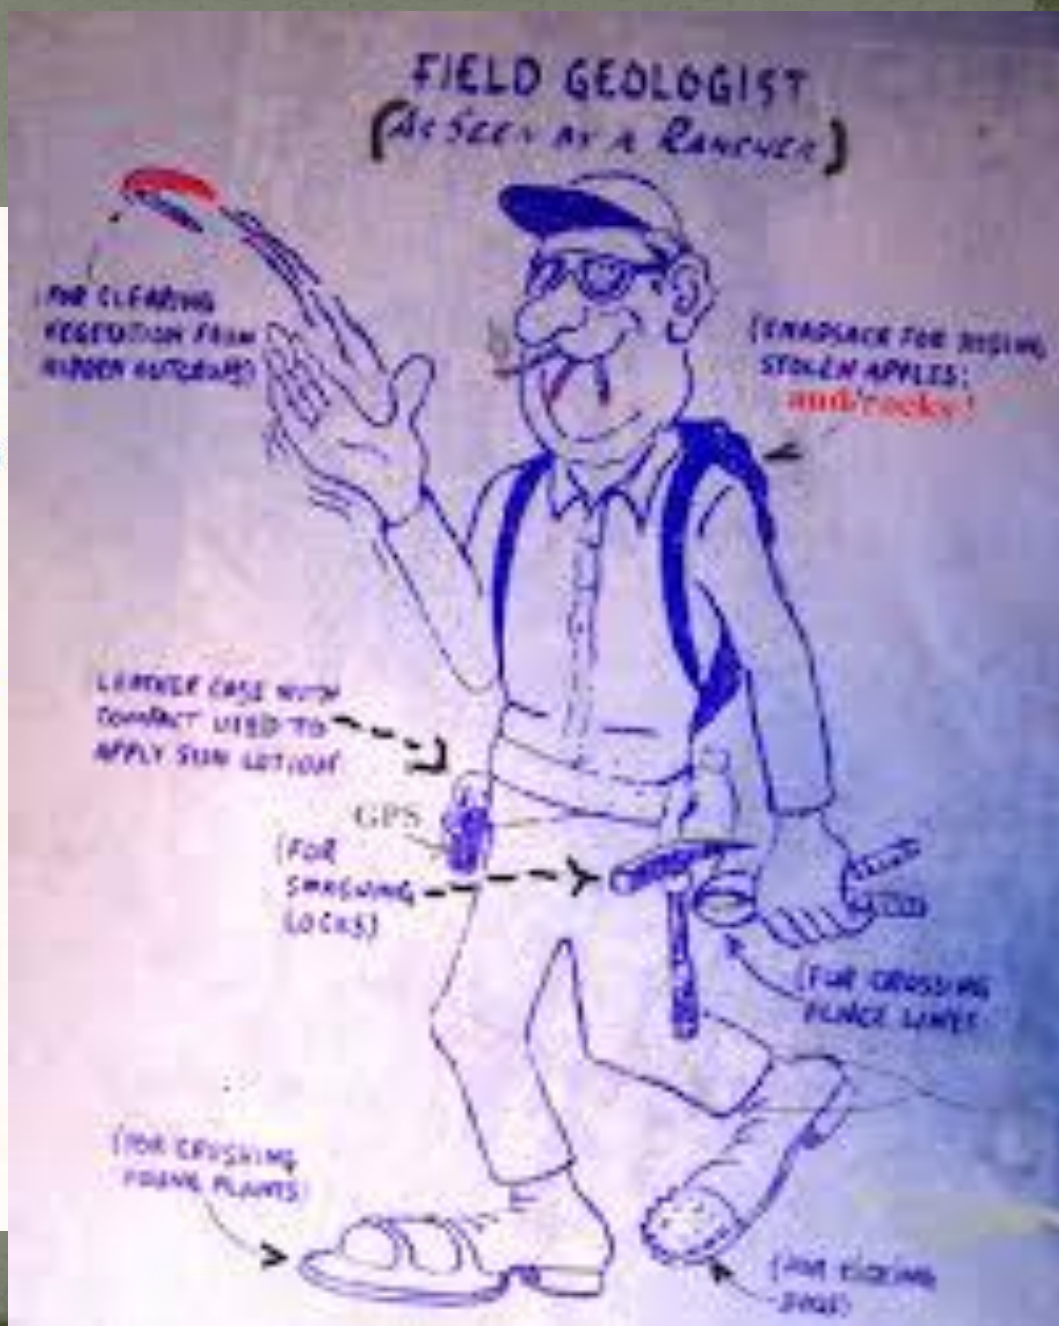 FIELD GEOLOGIST
(AS SEEN BY A RANCHER)
(FOR CLEARING
VEGETATION FROM
HIDDEN OUTCROPS)
(KNAPSACK FOR HIDING
STOLEN APPLES:
and/rocks!
LEATHER CASE WITH
COMPACT USED TO
APPLY SUN LOTION)
GPS
(FOR
SMASHING
LOCKS)
(FOR CROSSING
FENCE LINES
(FOR CRUSHING
YOUNG PLANTS)
(FOR KICKING
DOGS)